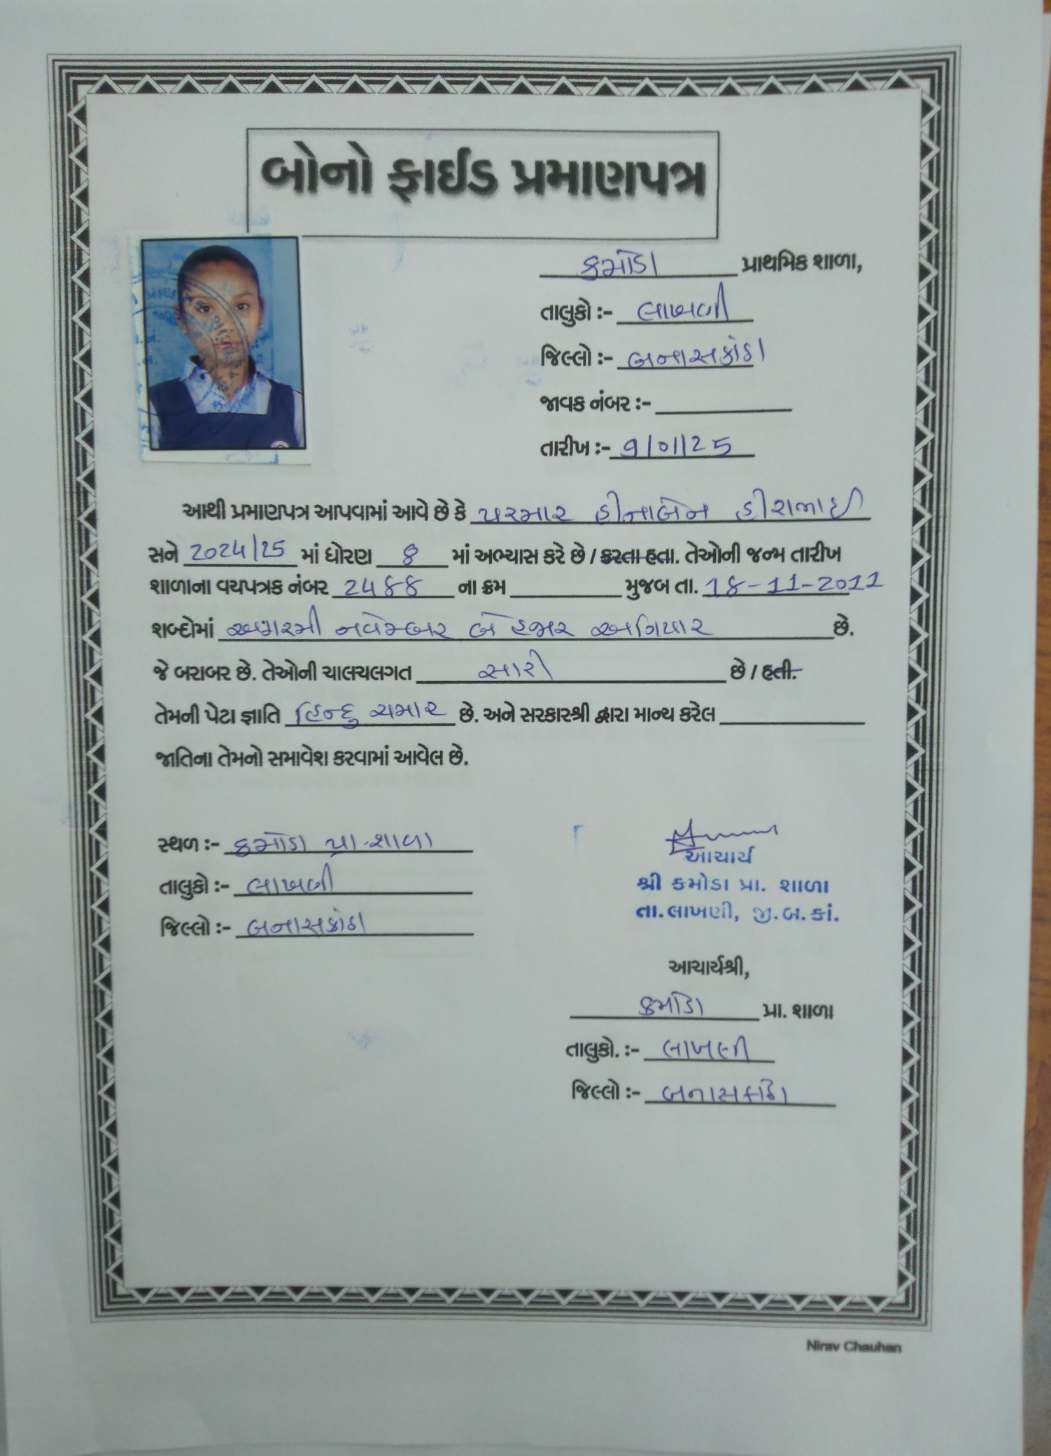 બોનો ફાઈડ પ્રમાણપત્ર
કમોડા પ્રાથમિક શાળા,
તાલુકો :- લાખણી
જિલ્લો :- બનાસકાંઠા
જાવક નંબર :-
તારીખ :- 9/01/25
આથી પ્રમાણપત્ર આપવામાં આવે છે કે પરમાર હીનાબેન હીરાભાઈ
સને 2024/25 માં ધોરણ 8 માં અભ્યાસ કરે છે / કરતા હતા. તેઓની જન્મ તારીખ
શાળાના વયપત્રક નંબર 2488 ના ક્રમ મુજબ તા. 18-11-2011
શબ્દોમાં અઢારમી નવેમ્બર બે હજાર અગિયાર છે.
જે બરાબર છે. તેઓની ચાલચલગત સારી છે / હતી.
તેમની પેટા જ્ઞાતિ હિન્દુ ચમાર છે. અને સરકારશ્રી દ્વારા માન્ય કરેલ
જાતિના તેમનો સમાવેશ કરવામાં આવેલ છે.
સ્થળ :- કમોડા પ્રા. શાળા
તાલુકો :- લાખણી
જિલ્લો :- બનાસકાંઠા
આચાર્ય
શ્રી કમોડા પ્રા. શાળા
તા. લાખણી, જી. બ. કાં.
આચાર્યશ્રી,
કમોડા પ્રા. શાળા
તાલુકો. :- લાખણી
જિલ્લો :- બનાસકાંઠા
Nirav Chauhan